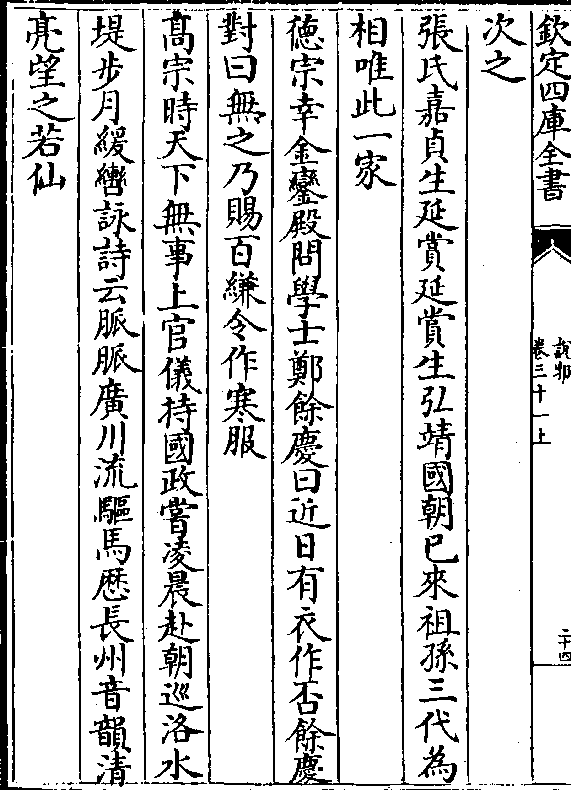 欽定四庫全書
說郛
卷三十一上
二十四
次之
張氏嘉貞生延賞延賞生弘靖國朝已來祖孫三代為
相唯此一家
徳宗幸金鑾殿問學士鄭餘慶曰近日有衣作否餘慶
對曰無之乃賜百縑令作寒服
髙宗時天下無事上官儀持國政嘗凌晨赴朝巡洛水
堤步月緩轡詠詩云脈脈廣川流驅馬歴長州音韻清
亮望之若仙